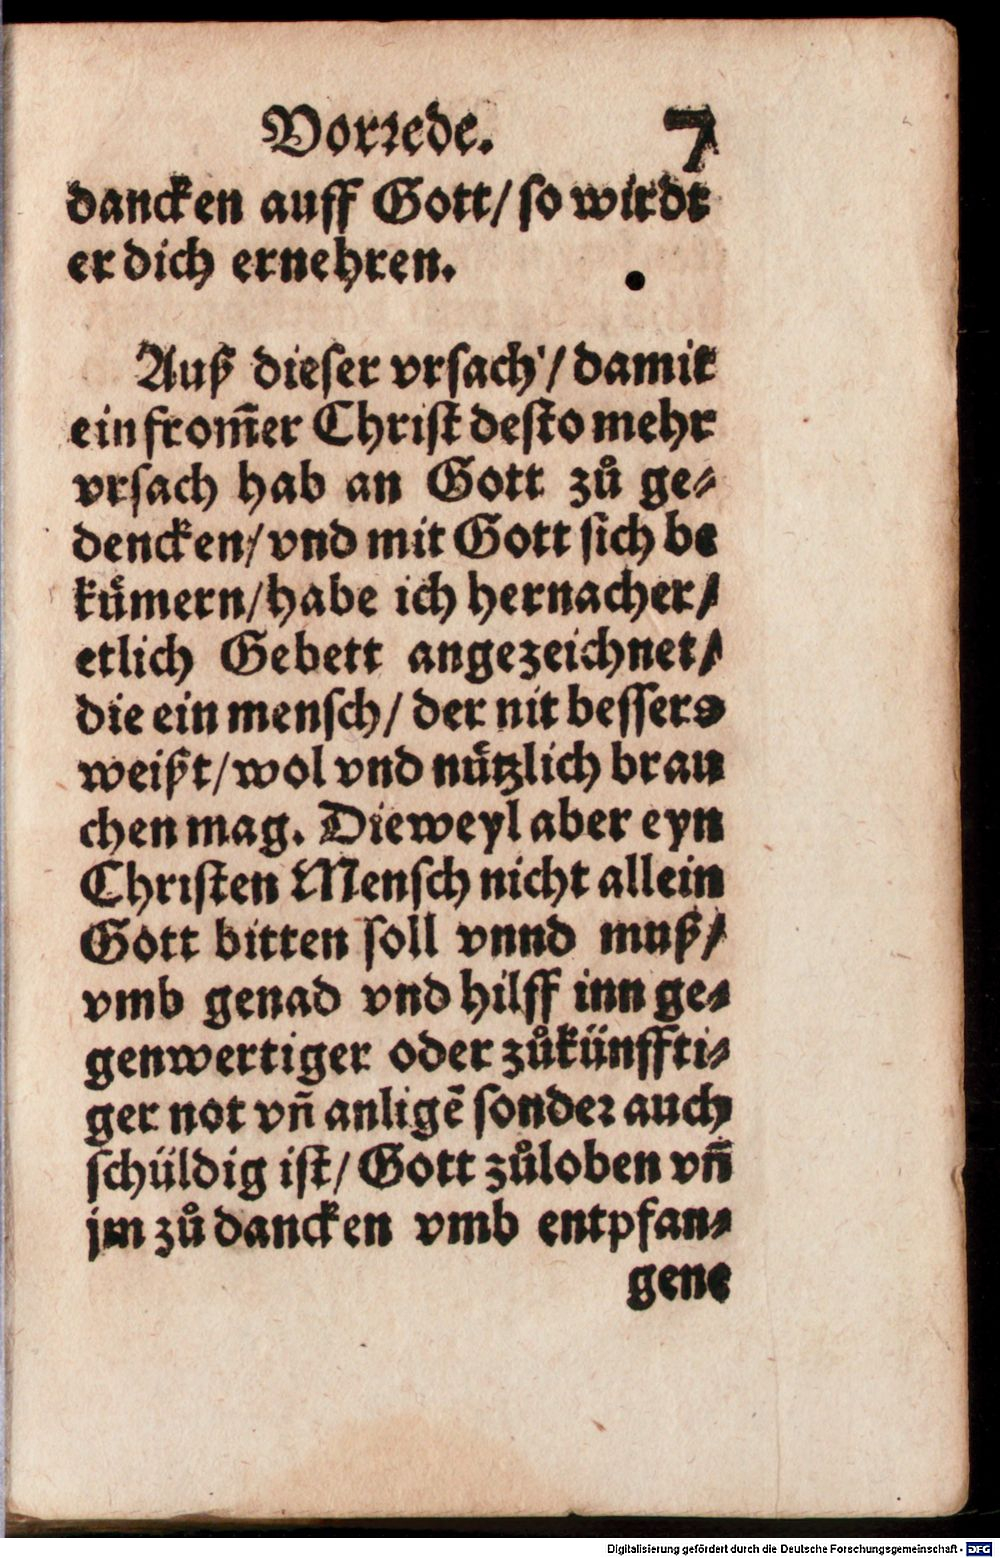 Vorꝛede. 7
dancken auff Gott/ so wirdt
er dich ernehren.
Auß dieser vrsach/ damit
ein from̃er Christ desto mehr
vrsach hab an Gott zuͦ ge⸗
dencken/ vnd mit Gott sich be
kuͤmern/ habe ich hernacher/
etlich Gebett angezeichnet/
die ein mensch/ der nit bessers
weißt/ wol vnd nuͤtzlich brau
chen mag. Dieweyl aber eyn
Christen Mensch nicht allein
Gott bitten soll vnnd muß/
vmb genad vnd hilff inn ge⸗
genwertiger oder zuͦkünffti⸗
ger not vñ anligẽ sondeꝛ auch
schüldig ist/ Gott zuͦloben vñ
jm zuͦ dancken vmb entpfan⸗
gene
Digitalisierung gefördert durch die Deutsche Forschungsgemeinschaft - DFG